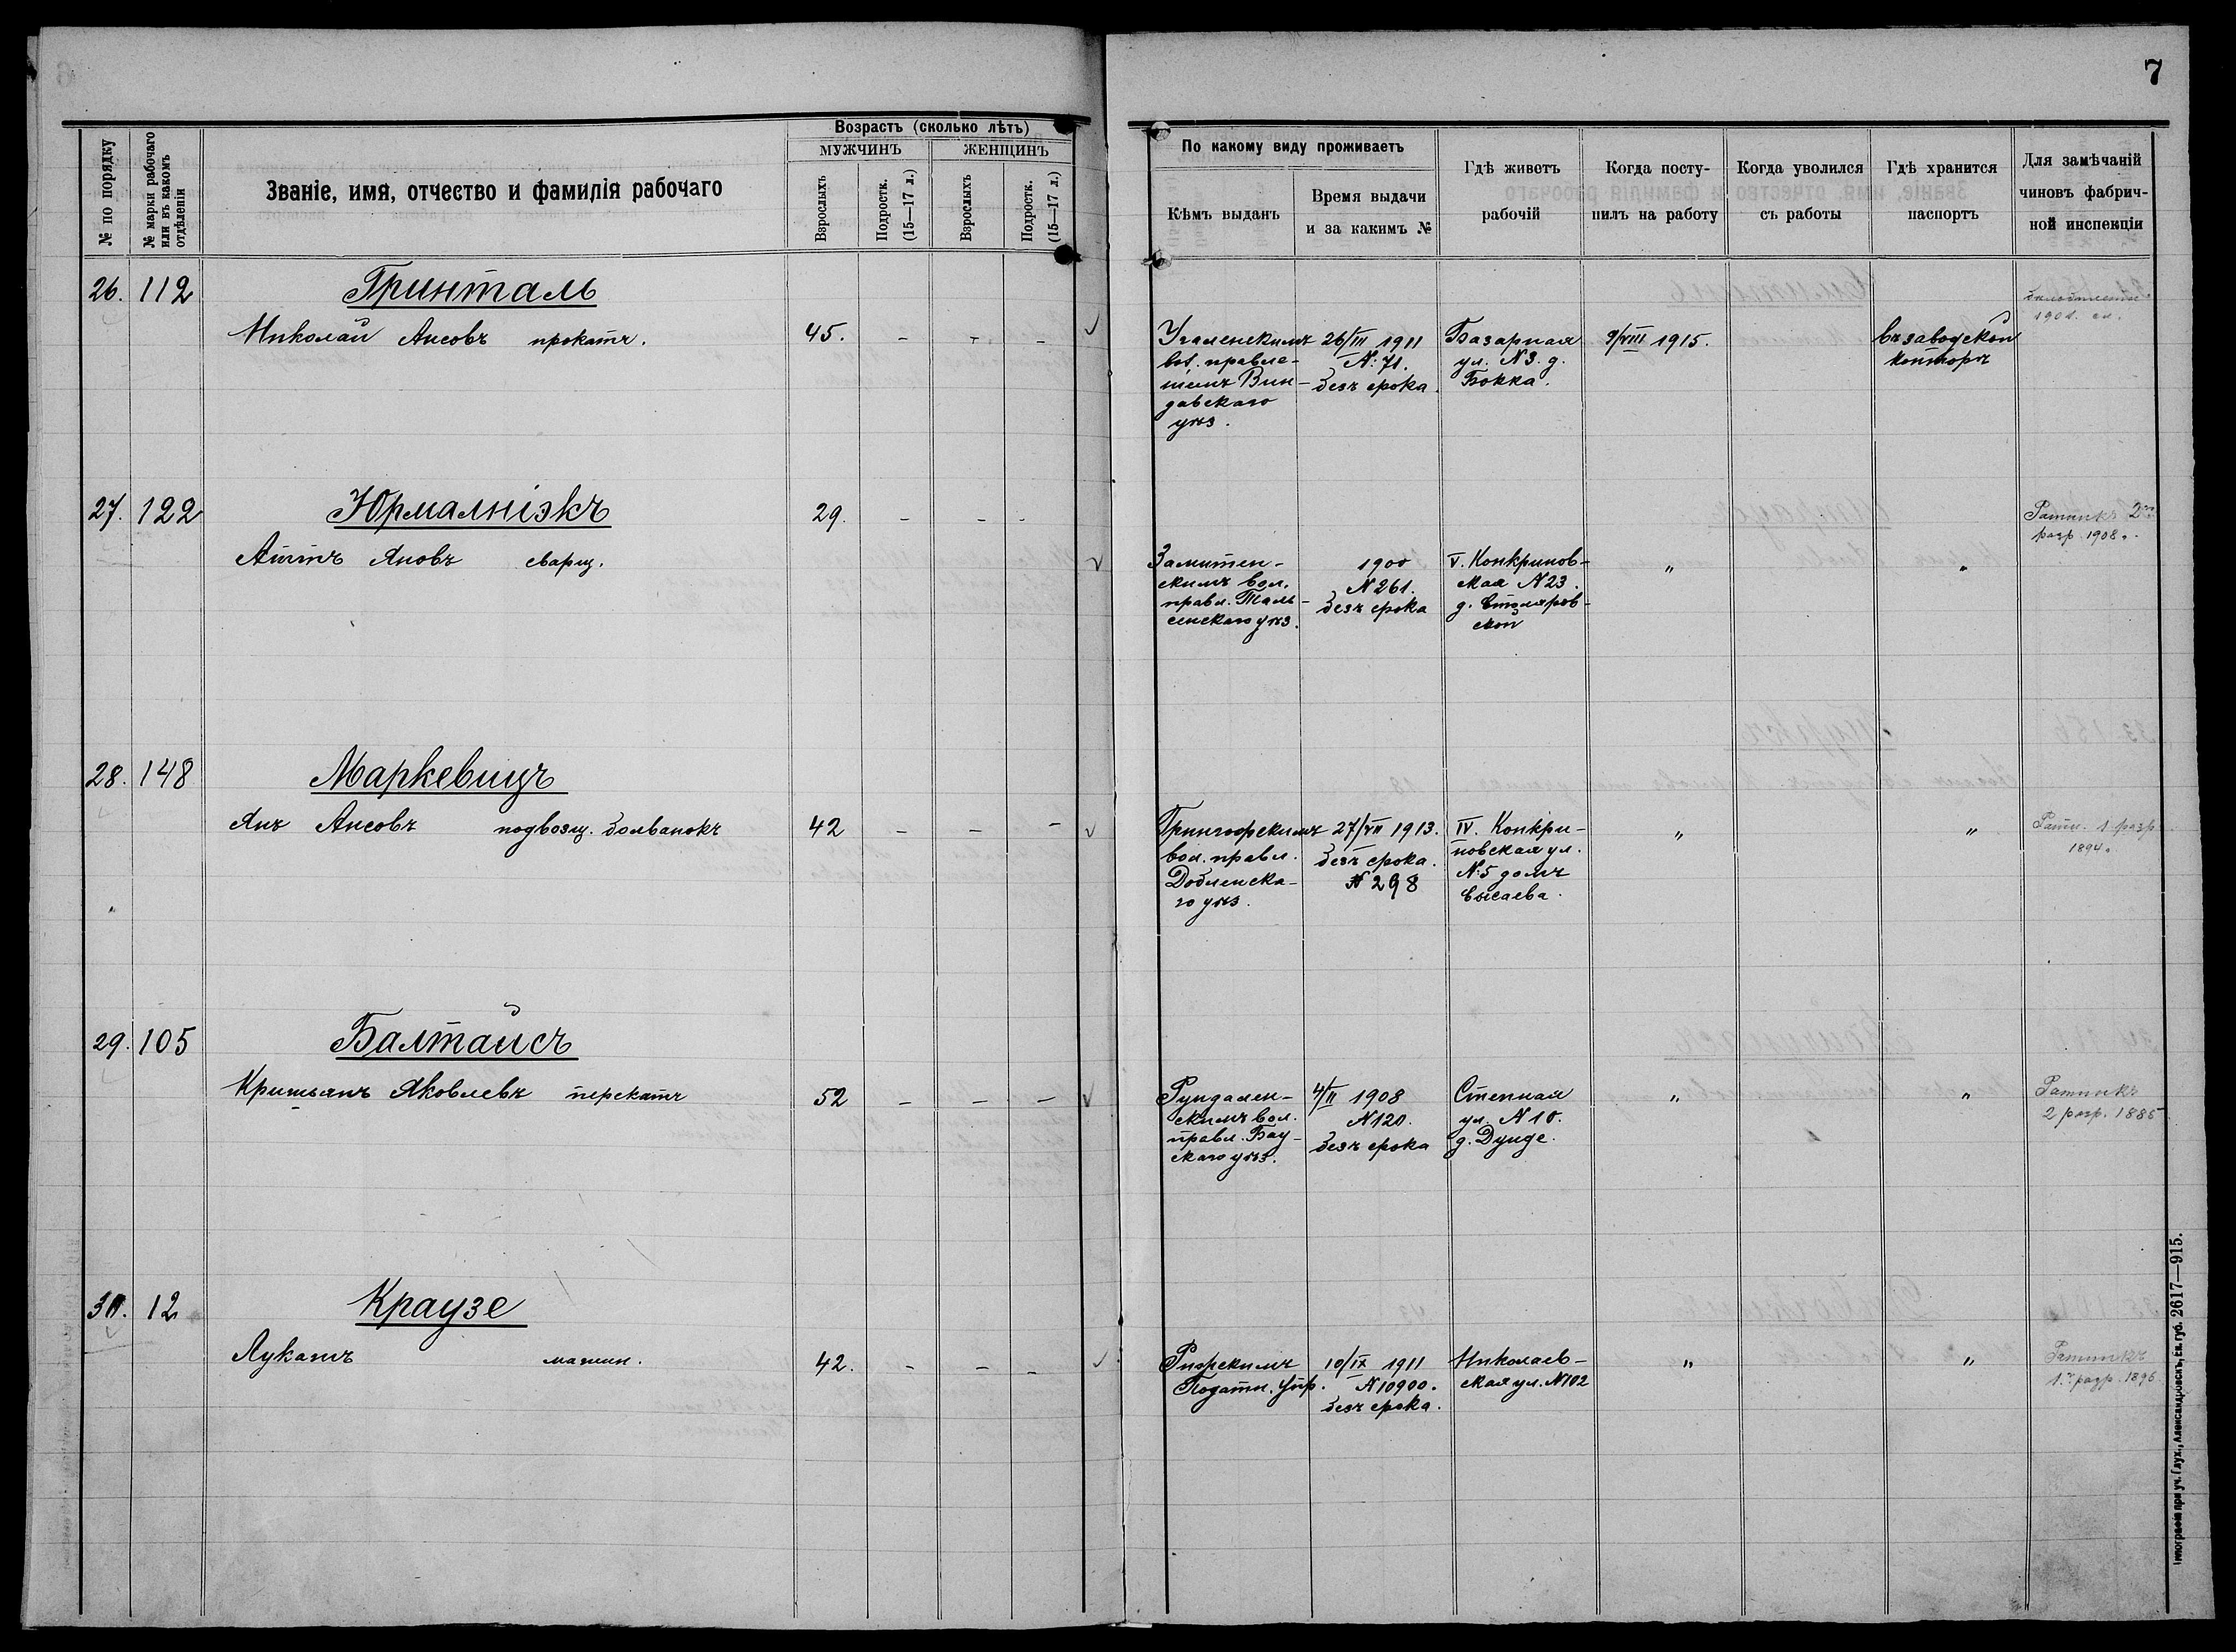 7
№ по порядку
№ марки рабочаго или въ какомъ отдѣленіи
Званіе, имя, отчество и фамилія рабочаго
Возрастъ (сколько лѣтъ)
МУЖЧИНЪ
ЖЕНЩИНЪ
Взрослыхъ
Подростк. (15—17 л.)
Взрослыхъ
Подростк. (15—17 л.)
По какому виду проживаетъ
Кѣмъ выданъ
Время выдачи
и за какимъ №
Гдѣ живетъ
рабочій
Когда посту-
пилъ на работу
Когда уволился
съ работы
Гдѣ хранится
паспортъ
Для замѣчаній
чиновъ фабрич-
ной инспекціи
26. 112 Гринталь
Николай Ансовъ прокатч. 45. - - -
Угаленскимъ
вол. правле-
ніемъ Вин-
давскаго
уѣз.
26/III 1911
№ 71.
безъ срока.
Базарная
ул. № 3. д.
Бокка.
9/VIII 1915.
въ заводской
конторѣ
1901.
27. 122 Юрмалніэкъ 29. - - -
Аттъ Яновъ сварщ.
вол.
правл. Таль-
сенскаго уѣз.
1900
№ 261.
безъ срока
V. Конкринов-
ская № 23.
д. Столяров-
ской
" "
Ратникъ 2го
разр. 1908 г.
28. 148 Маркевицъ
Янъ Ансовъ подвозщ. болванокъ 42 - - -
Грингофскимъ
вол. правл.
Добленска-
го уѣз.
27/VII 1913.
безъ срока.
№ 298
IV. Конкри-
новская ул.
№ 5 домъ
Сысаева.
" "
Ратн. 1 разр.
1894 г.
29. 105 Балтайсъ
Кришьянъ Яковлевъ перекатч 52 - - -
Рундален-
скимъ вол.
правл. Бау-
скаго уѣз.
4/II 1908
№ 120.
безъ срока
Степная
ул. № 10.
д. Дунде.
" "
Ратникъ
2 разр. 1885
30. 12 Краузе
Лукашъ машин. 42. - - -
Рижскимъ
Податн. Упр.
10/IX 1911
№ 10900.
безъ срока.
Николаев-
ская ул. № 102
" "
Ратникъ
1го разр. 1896
Типографія при уч. Глух., Александровскъ, Ек. губ. 2617—915.